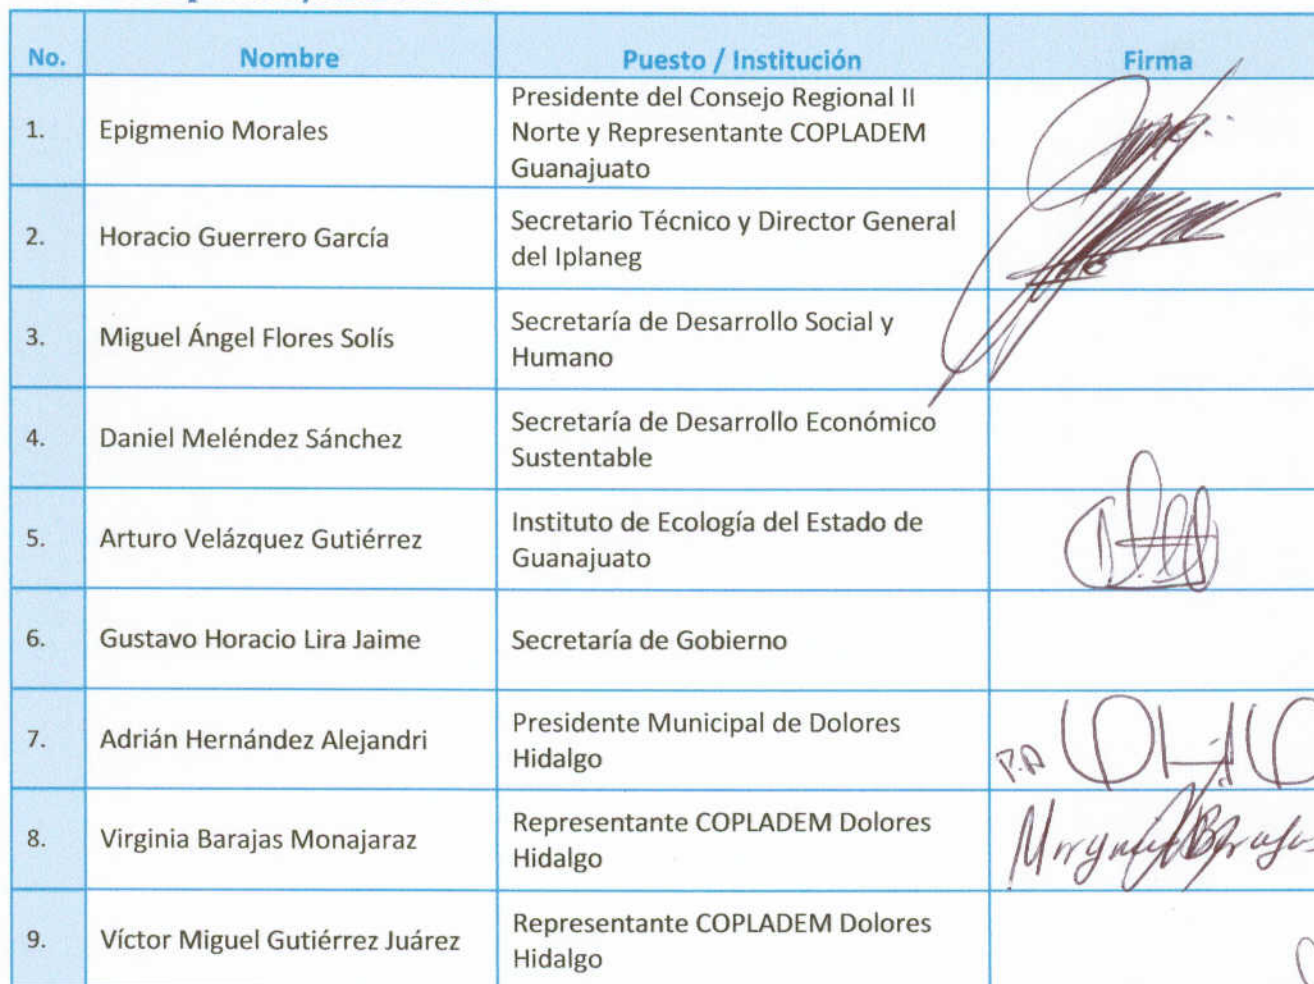 No. Nombre Puesto / Institución Firma
1. Epigmenio Morales
Presidente del Consejo Regional II
Norte y Representante COPLADEM
Guanajuato
2. Horacio Guerrero García
Secretario Técnico y Director General
del Iplaneg
3. Miguel Ángel Flores Solís
Secretaría de Desarrollo Social y
Humano
4. Daniel Meléndez Sánchez
Secretaría de Desarrollo Económico
Sustentable
5. Arturo Velázquez Gutiérrez
Instituto de Ecología del Estado de
Guanajuato
6. Gustavo Horacio Lira Jaime
Secretaría de Gobierno
7. Adrián Hernández Alejandri
Presidente Municipal de Dolores
Hidalgo
P.A
8. Virginia Barajas Monajaraz
Representante COPLADEM Dolores
Hidalgo
9. Víctor Miguel Gutiérrez Juárez
Representante COPLADEM Dolores
Hidalgo